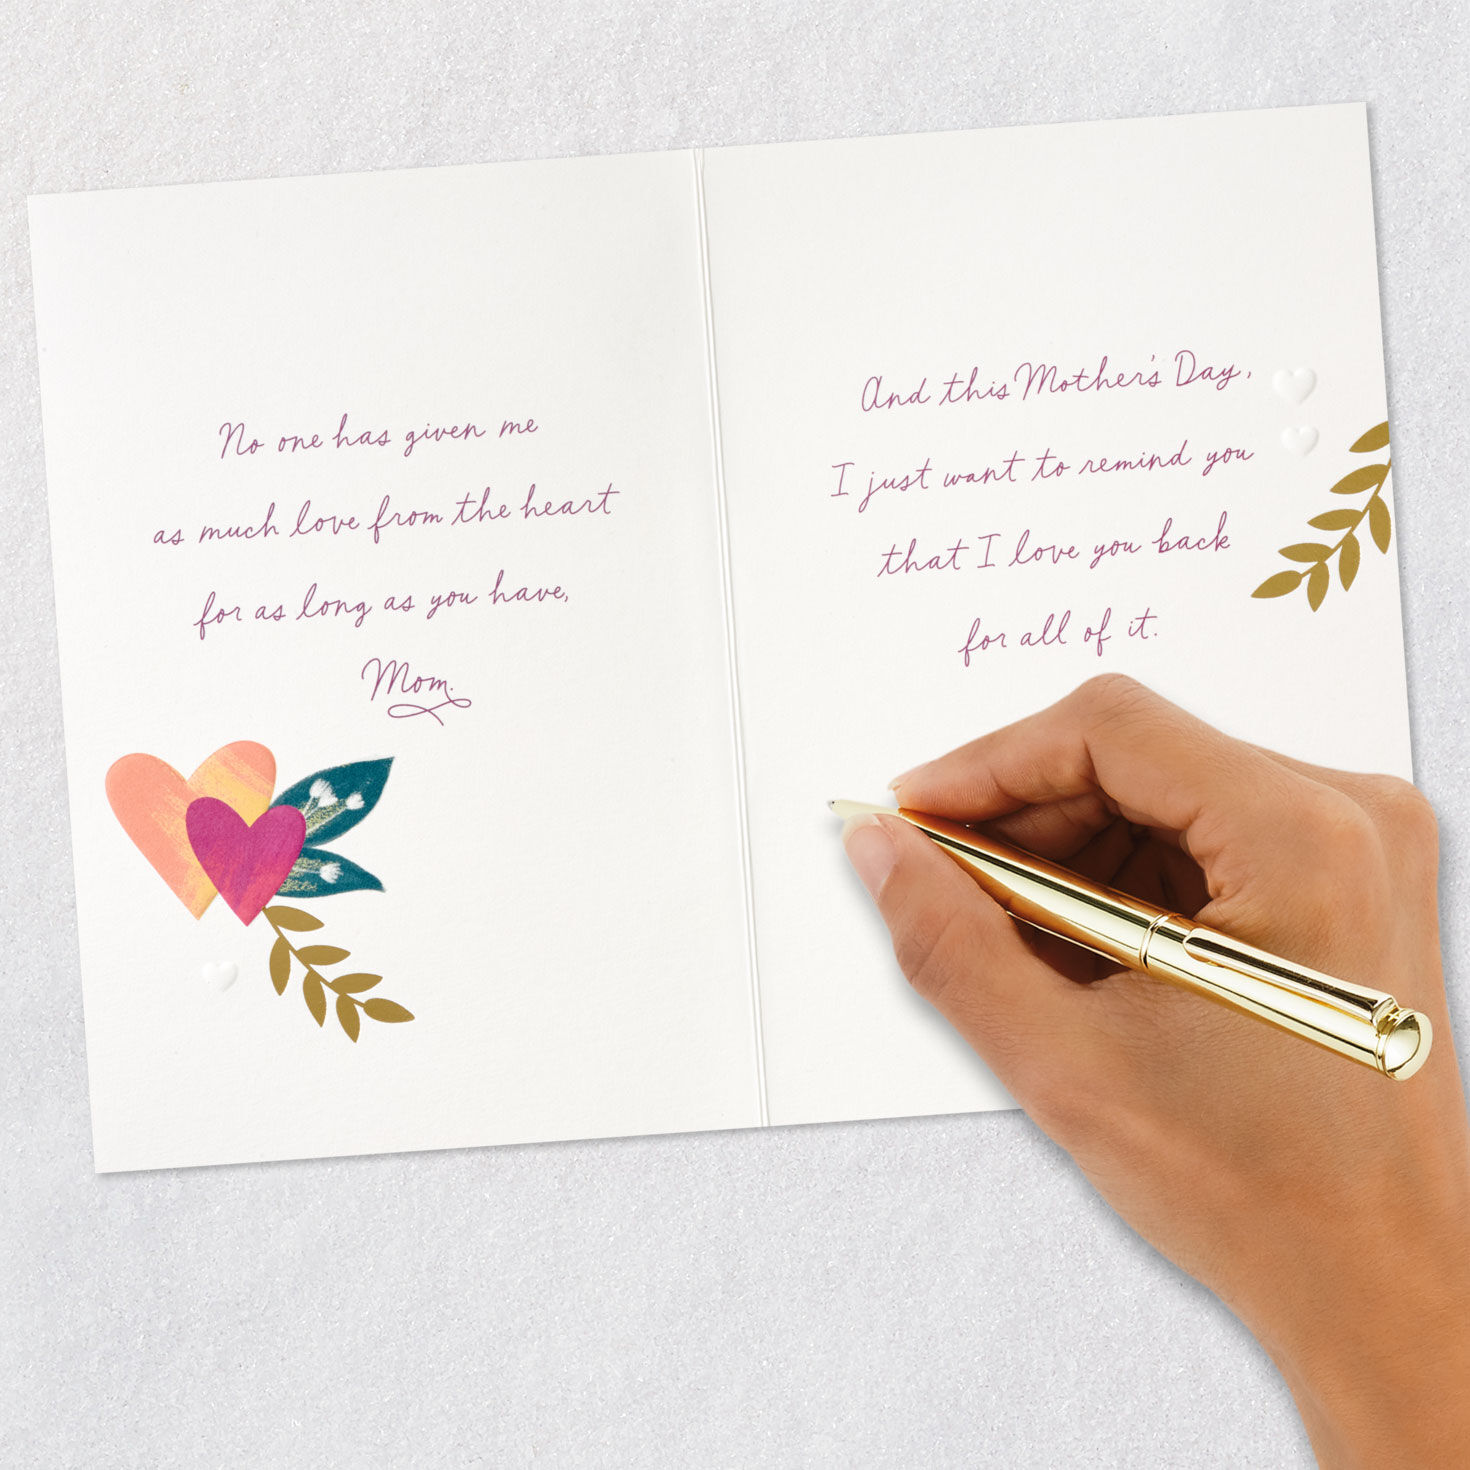 No one has given me
as much love from the heart
for as long as you have,
Mom.
And this Mother's Day,
I just want to remind you
that I love you back
for all of it.